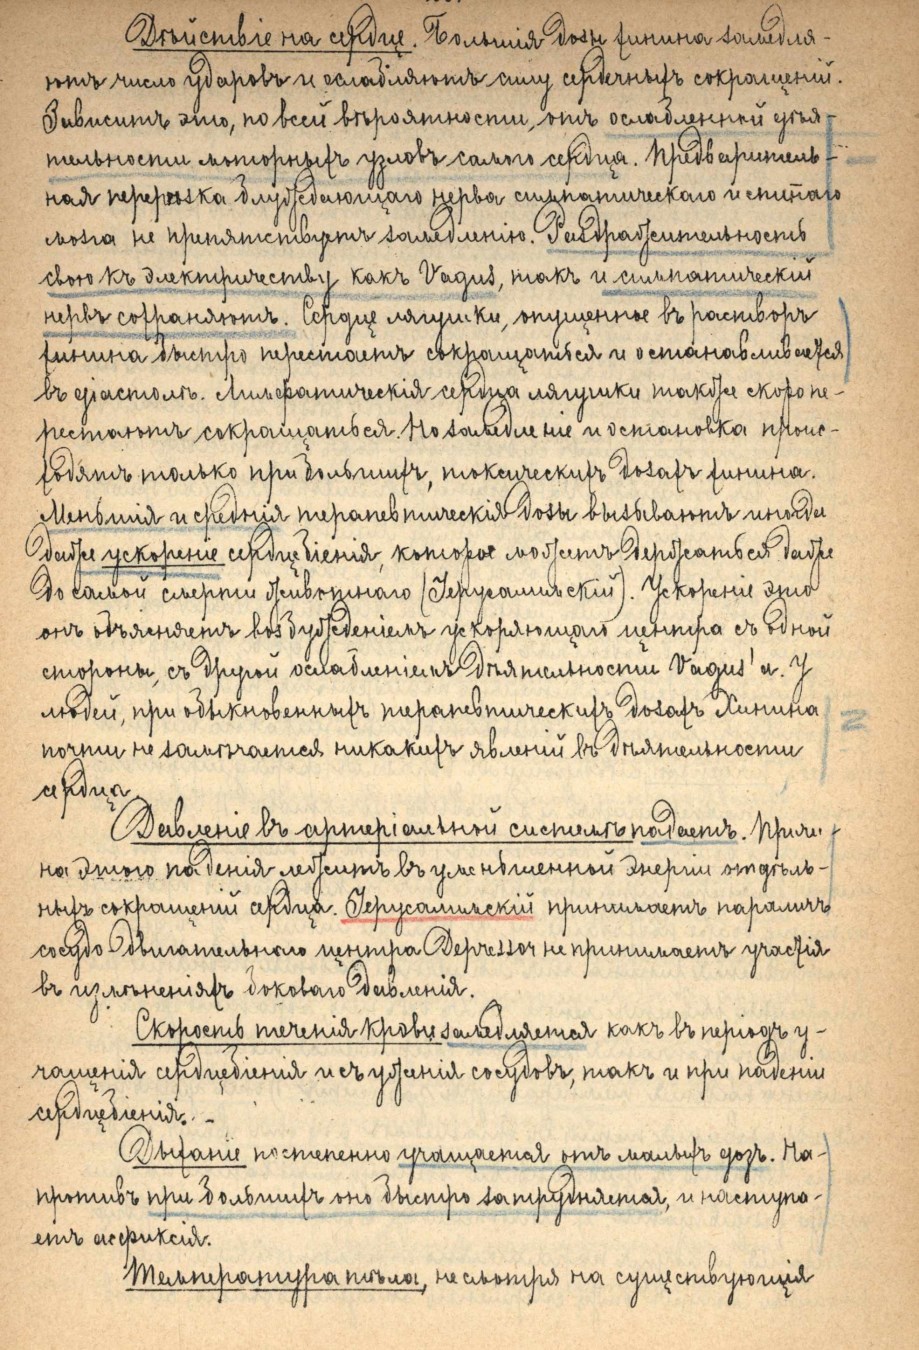 Дѣйствіе на сердце. Большія дозы хинина замедля-
ютъ число ударовъ и ослабляютъ силу сердечныхъ сокращеній.
Зависитъ это, по всей вѣроятности, отъ ослабленной дѣя-
тельности моторныхъ узловъ самого сердца. Предваритель-
ная перерѣзка блуждающаго нерва симпатическаго и спиннаго
мозга не препятствуетъ замедленію. Раздражительность
свою къ электричеству какъ Vagus, такъ и симпатическій
нервъ сохраняютъ. Сердце лягушки, опущенное въ растворъ
хинина быстро перестаетъ сокращаться и останавливается
въ діастолѣ. Лимфатическія сердца лягушки также скоро пе-
рестаютъ сокращаться. Но замедленіе и остановка проис-
ходятъ только при большихъ, токсическихъ дозахъ хинина.
Меньшія и среднія терапевтическія дозы вызываютъ иногда
даже ускореніе сердцебіенія, которое можетъ держаться даже
до самой смерти животнаго (Іерусалимскій). Ускореніе это
онъ объясняетъ возбужденіемъ ускоряющаго центра съ одной
стороны, съ другой ослабленіемъ дѣятельности Vagus'а. У
людей, при обыкновенныхъ терапевтическихъ дозахъ Хинина
почти не замѣчается никакихъ явленій въ дѣятельности
сердца.
Давленіе въ артеріальной системѣ падаетъ. Причи-
на этого паденія лежитъ въ уменьшенной энергіи отдѣль-
ныхъ сокращеній сердца. Іерусалимскій принимаетъ параличъ
сосудо-двигательнаго центра Depressor не принимаетъ участія
въ измѣненіяхъ боковаго давленія.
Скорость теченія крови замедляется какъ въ періодъ у-
чащенія сердцебіенія и съуженія сосудовъ, такъ и при паденіи
сердцебіенія.
Дыханіе постепенно учащается отъ малыхъ дозъ. На-
противъ при большихъ оно быстро затрудняется, и наступа-
етъ асфиксія.
Температура тѣла, несмотря на существующія